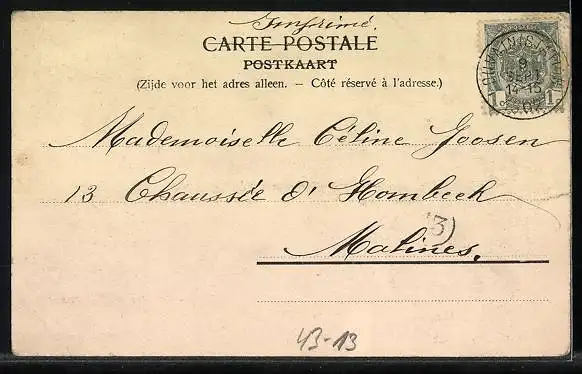 Imprimé.
CARTE POSTALE
POSTKAART
(Zijde voor het adres alleen. — Côté réservé à l'adresse.)
9
SEPT
14-15
1 1
Mademoiselle Céline Goosen
13 Chaussée d'Hombeek
3
Malines.
43-13